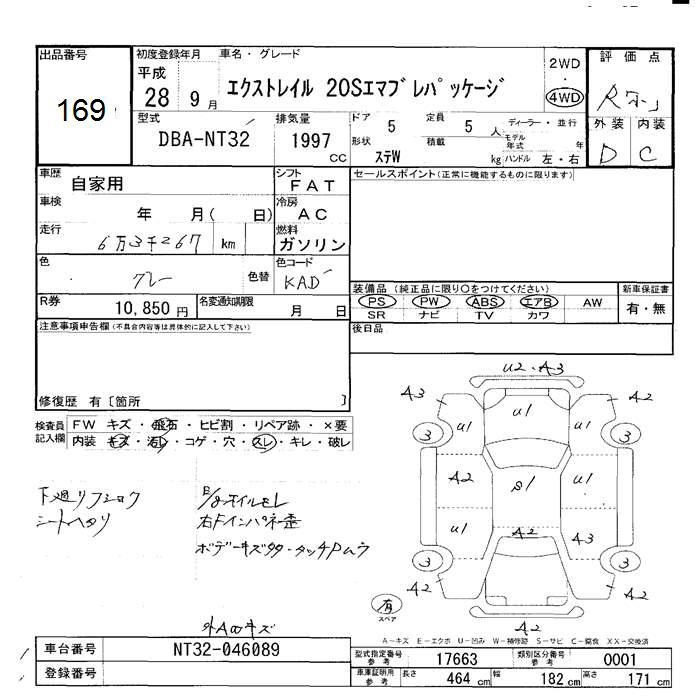 出品番号
169
初度登録年月
平成
28 9月
車名・グレード
エクストレイル 20Sエマブレパッケージ
2WD
・
4WD
評価点
外装 内装
D C
型式
DBA-NT32
排気量
1997
CC
ドア 5
定員 5 人
ディーラー・並行
形状 ステW
積載 kg
モデル年式 年
ハンドル 左・右
車歴
自家用
シフト
FAT
セールスポイント(正常に機能するものに限ります)
車検
年 月( 日)
冷房
AC
走行
6万3千267 km
燃料
ガソリン
色
グレー
色替
色コード
KAD
装備品 (純正品に限り○をつけてください)
新車保証書
PS PW ABS エアB AW
SR ナビ TV カワ
有・無
R券
10,850円
名変通知期限
月 日
後日品
注意事項申告欄(不具合内容等は具体的に記入して下さい)
修復歴 有〔箇所 〕
検査員記入欄
FW キズ・飛石・ヒビ割・リペア跡・×要
内装 キズ・汚レ・コゲ・穴・スレ・キレ・破レ
シートヘタリ
右Fインパネ歪
U2・A3
A3
A2
U1
U1
U1
3
3
A2
S1
U1
U1
A2
A3
3
3
A2
A2
A2
有
スペア
A-キズ E-エクボ U-凹み W-補修跡 S-サビ C-腐食 XX-交換済
車台番号
NT32-046089
登録番号
型式指定番号
参考
17663
類別区分番号
参考
0001
車庫証明用
参考
長さ 464 cm
幅 182 cm
高さ 171 cm